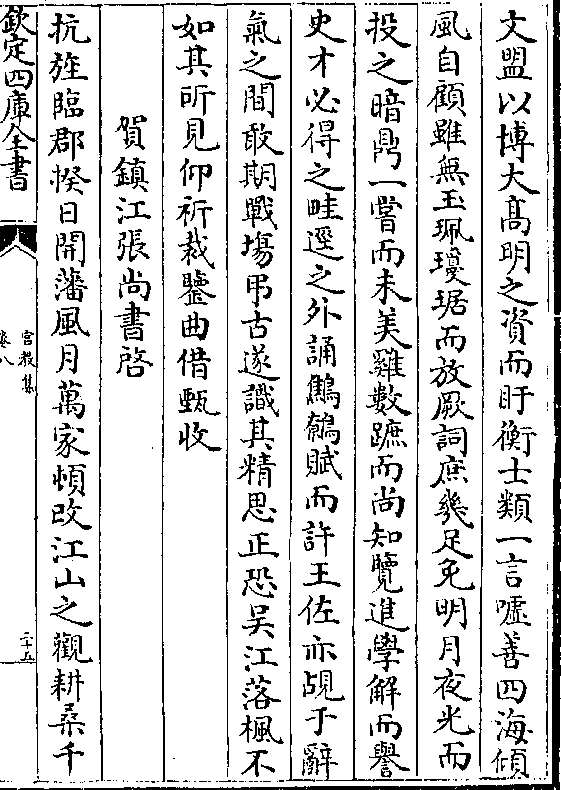 文盟以博大髙明之資而盱衡士類一言噓善四海傾
風自顧雖無玉珮瓊琚而放厥詞庶幾足免明月夜光而
投之暗鼎一嘗而未美雞數蹠而尚知覽進學解而譽
史才必得之畦逕之外誦鷦鷯賦而許王佐亦覘于辭
氣之間敢期戰塲弔古遂識其精思正恐吳江落楓不
如其所見仰祈裁鑒曲借甄收
賀鎮江張尚書啓
抗旌臨郡揆日開藩風月萬家頓改江山之觀耕桑千
欽定四庫全書
宫教集
卷八
二十五